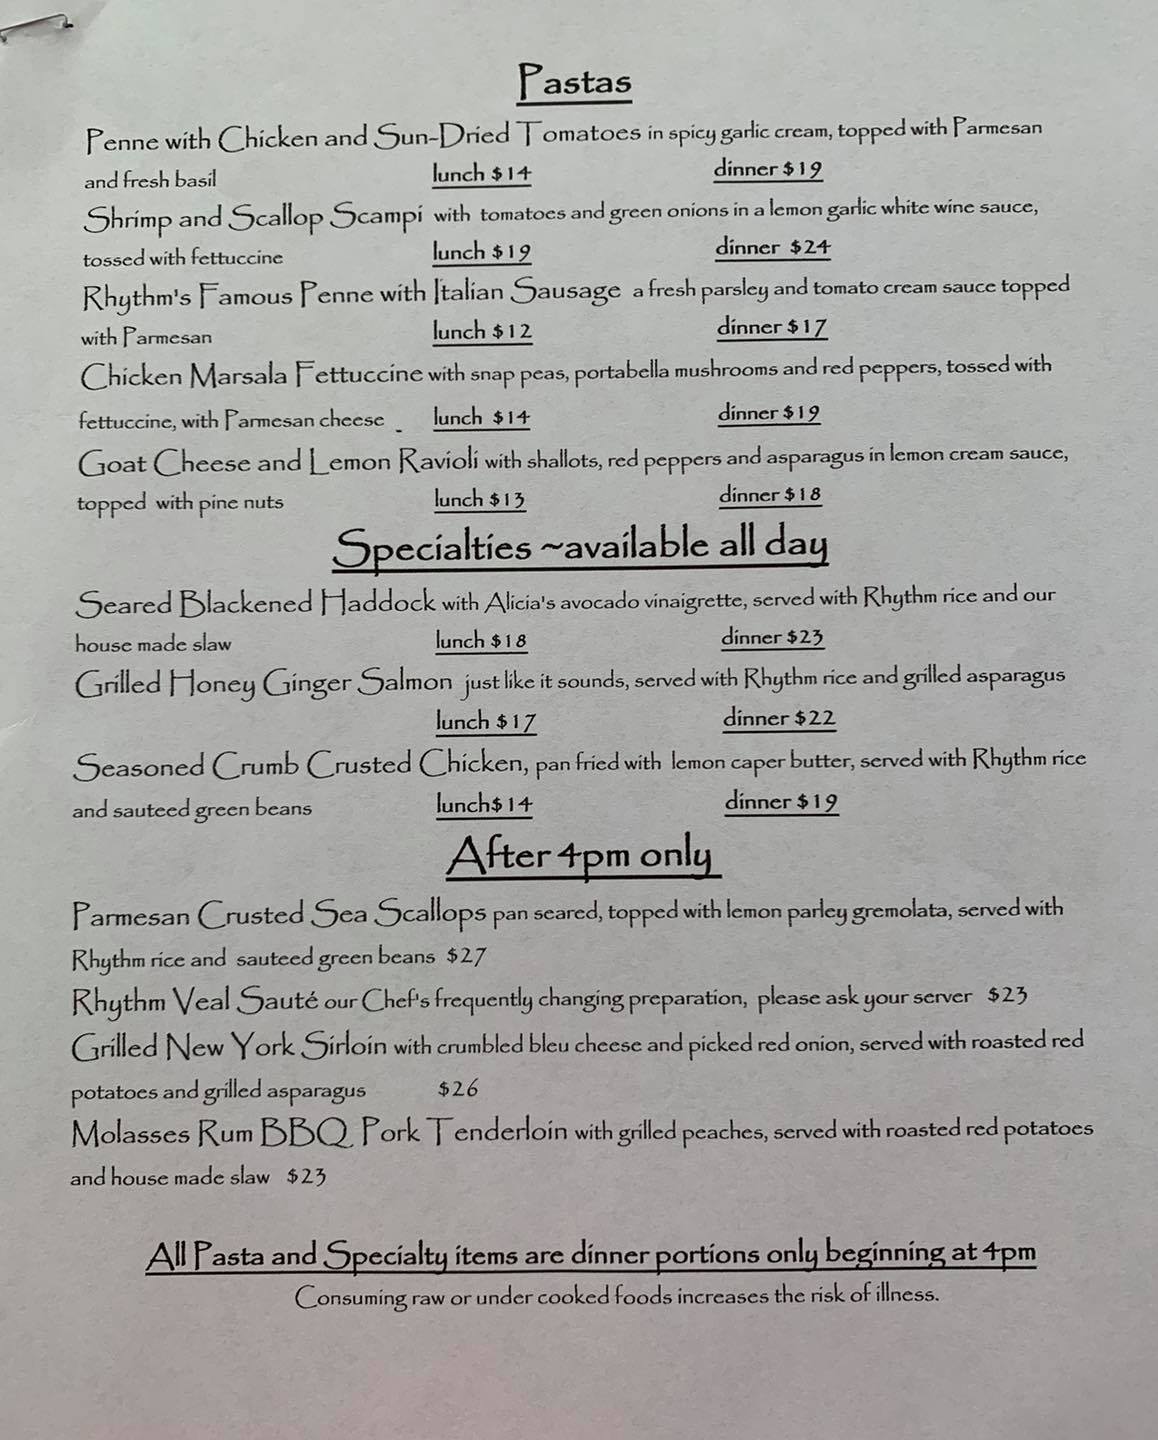 Pastas
Penne with Chicken and Sun-Dried Tomatoes in spicy garlic cream, topped with Parmesan
and fresh basil lunch $14 dinner $19
Shrimp and Scallop Scampi with tomatoes and green onions in a lemon garlic white wine sauce,
tossed with fettuccine lunch $19 dinner $24
Rhythm's Famous Penne with Italian Sausage a fresh parsley and tomato cream sauce topped
with Parmesan lunch $12 dinner $17
Chicken Marsala Fettuccine with snap peas, portabella mushrooms and red peppers, tossed with
fettuccine, with Parmesan cheese _ lunch $14 dinner $19
Goat Cheese and Lemon Ravioli with shallots, red peppers and asparagus in lemon cream sauce,
topped with pine nuts lunch $13 dinner $18
Specialties ~available all day
Seared Blackened Haddock with Alicia's avocado vinaigrette, served with Rhythm rice and our
house made slaw lunch $18 dinner $23
Grilled Honey Ginger Salmon just like it sounds, served with Rhythm rice and grilled asparagus
lunch $17 dinner $22
Seasoned Crumb Crusted Chicken, pan fried with lemon caper butter, served with Rhythm rice
and sauteed green beans lunch$14 dinner $19
After 4pm only
Parmesan Crusted Sea Scallops pan seared, topped with lemon parley gremolata, served with
Rhythm rice and sauteed green beans $27
Rhythm Veal Sauté our Chef's frequently changing preparation, please ask your server $23
Grilled New York Sirloin with crumbled bleu cheese and picked red onion, served with roasted red
potatoes and grilled asparagus $26
Molasses Rum BBQ Pork Tenderloin with grilled peaches, served with roasted red potatoes
and house made slaw $23
All Pasta and Specialty items are dinner portions only beginning at 4pm
Consuming raw or under cooked foods increases the risk of illness.